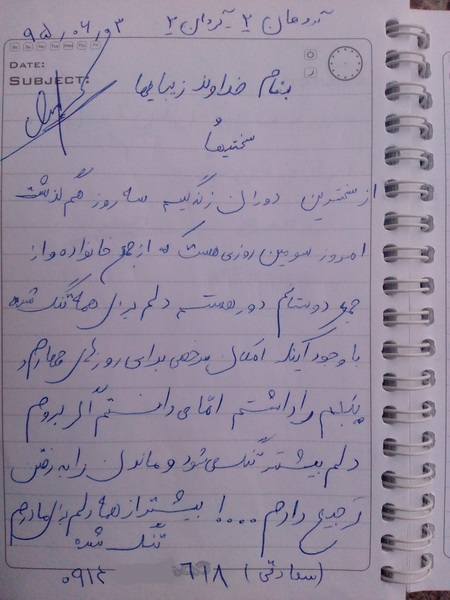 ۹۵٫۰۶٫۰۳
DATE:
SUBJECT:
بنام خداوند زیباییها
و
سختیها
از سختترین دوران زندگیم سه روز هم گذشت
امروز سومین روزی هست که از جمع خانواده و از
جمع دوستانم دور هستم دلم برای همه تنگ شده
با وجود اینکه امکان مرخصی برای روزهای چهارم و
پنجم را داشتم امّا می دانستم اگر بروم
دلم بیشتر تنگ می شود و ماندن را به رفتن
ترجیح دادم ....! بیشتر از همه دلم برای مادرم
تنگ شده
(سعادتی) ۶۱۸ ۰۹۱۴